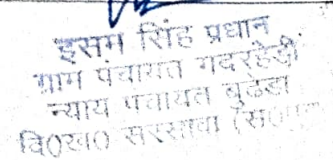 इसम सिंह प्रधान
ग्राम पंचायत गदरहेडी
न्याय पंचायत बुढेडा
वि0ख0 सरसावा (स0